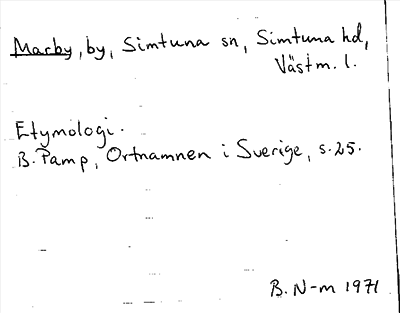 Marby, by, Simtuna sn, Simtuna hd,
Västm. l.
Etymologi.
B. Pamp, Ortnamnen i Sverige, s. 25.
B. N-m 1971